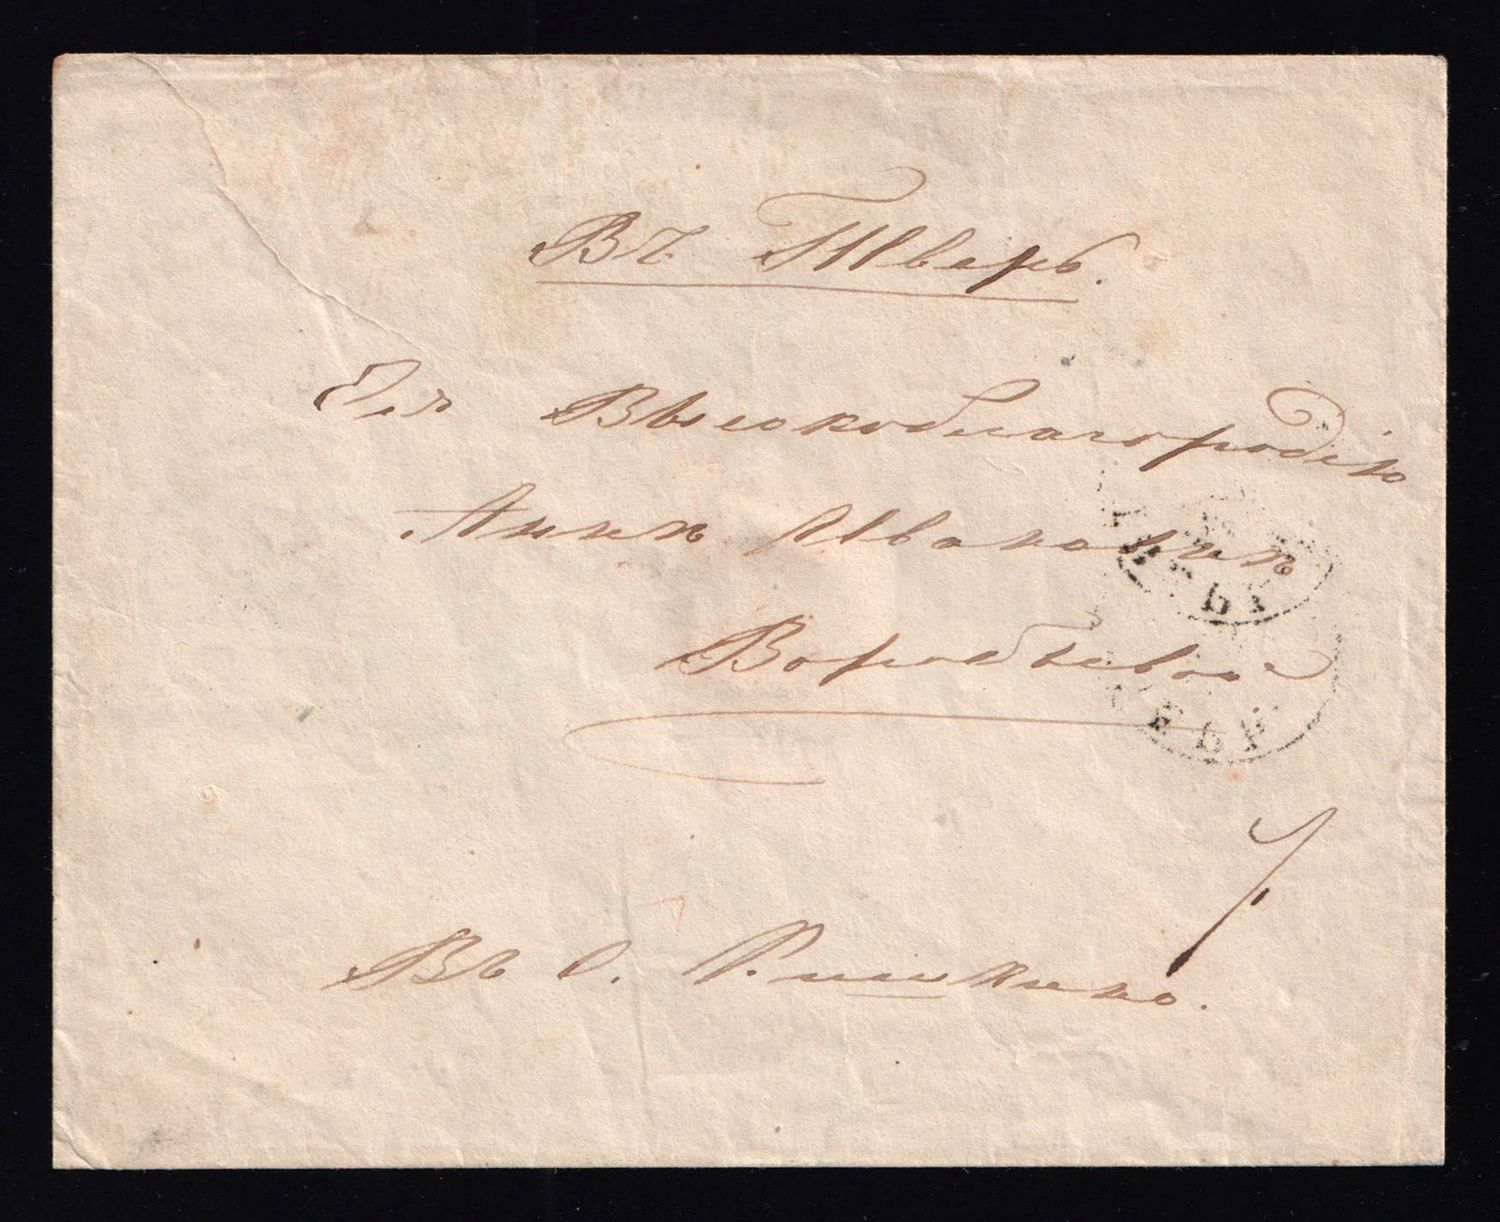 Въ Тверь.
Ея Высокоблагородію
Аннѣ Ивановнѣ
Воробьевой
Въ с.